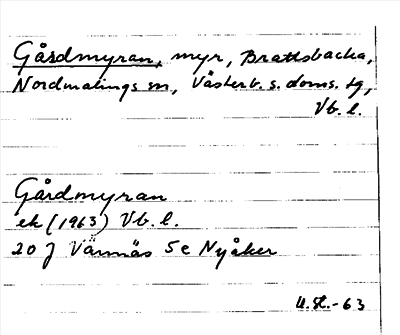 Gårdmyran, myr, Brattsbacka,
Nordmalings sn, Västerb. s. doms. tg,
Vb. l.
Gårdmyran
ek (1963) Vb. l.
20 J Vännäs 5 e Nyåker
U. St. - 63